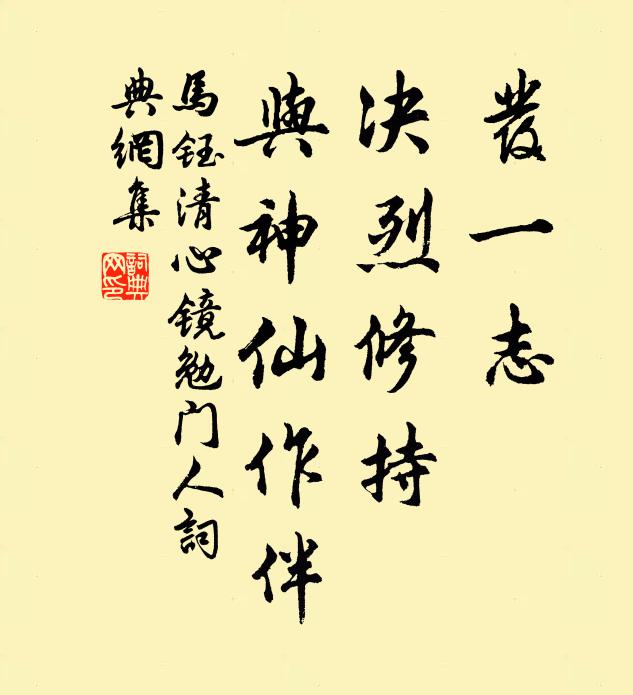 發一志
决烈修持
與神仙作伴
馬鈺清心鏡勉门人詞
典網集
詞典网印